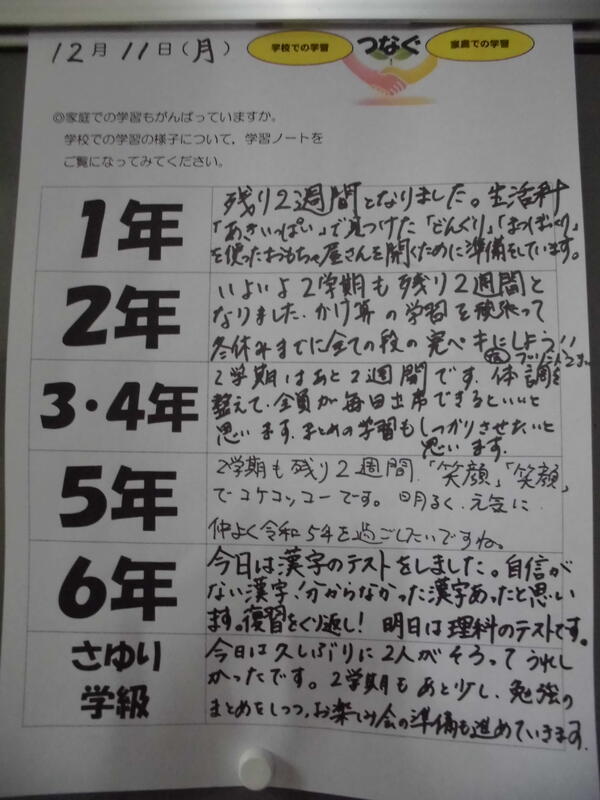 12月11日(月)
学校での学習
つなぐ
家庭での学習
◎家庭での学習もがんばっていますか。
学校での学習の様子について、学習ノートを
ご覧になってみてください。
1年
残り2週間となりました。生活科
「あきいっぱい」で見つけた「どんぐり」「まつぼっくり」
を使ったおもちゃ屋さんを開くために準備をしています。
2年
いよいよ2学期も残り2週間と
なりました。かけ算の学習を頑張って
冬休みまでに全ての段の完ペキにしよう!!
3・4年
2学期はあと2週間です。体調を
整えて、全員が毎日出席できるといいと
思います。まとめの学習もしっかりさせたいと
思います。
5年
2学期も残り2週間。「笑顔」「笑顔」
でコケコッコーです。明るく、元気に
仲よく令和5年を過ごしたいですね。
6年
今日は漢字のテストをしました。自信が
ない漢字!分からなかった漢字あったと思い
ます。復習をくり返し! 明日は理科のテストです。
さゆり
学級
今日は久しぶりに2人がそろってうれし
かったです。2学期もあと少し、勉強の
まとめをしつつ、お楽しみ会の準備も進めていきます。